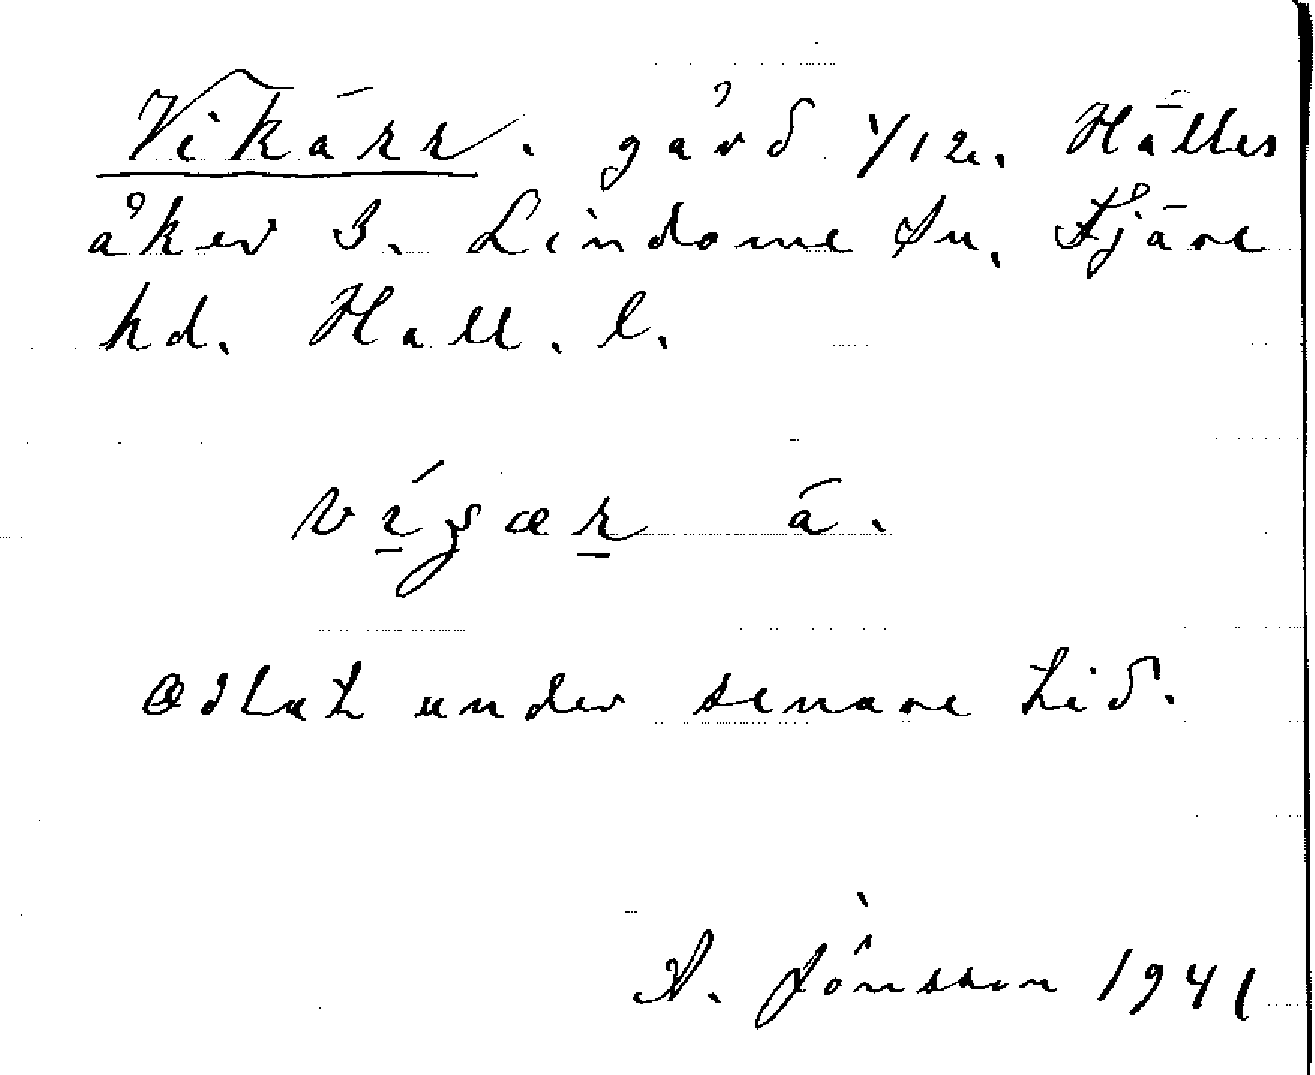 Vikärr. gård 1/12. Hälles
åker 3. Lindome sn. Fjäre
hd. Hall. l.
å.
Odlat under senare tid.
A. Jönsson 1941